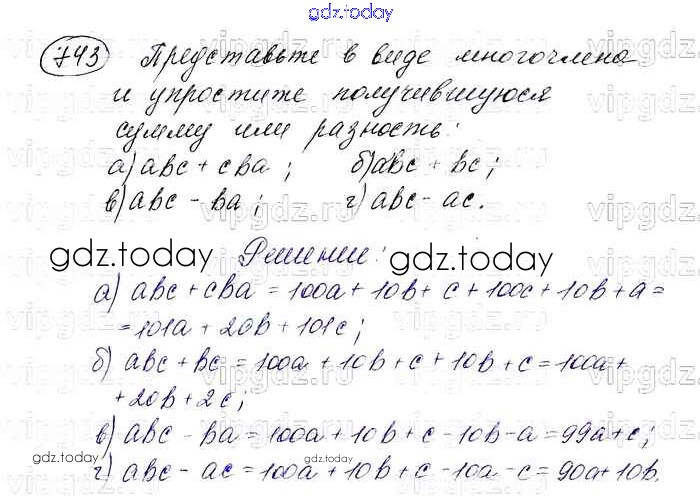 gdz.today
743 Представьте в виде многочлена
и упростите получившуюся
сумму или разность:
а) abc + cba; б) abc + bc;
в) abc - ba; г) abc - ac.
gdz.today Решение: gdz.today
а) abc + cba = 100a + 10b + c + 100c + 10b + a =
= 101a + 20b + 101c;
б) abc + bc = 100a + 10b + c + 10b + c = 100a +
+ 20b + 2c;
в) abc - ba = 100a + 10b + c - 10b - a = 99a + c;
gdz.today gdz.today
г) abc - ac = 100a + 10b + c - 10a - c = 90a + 10b.